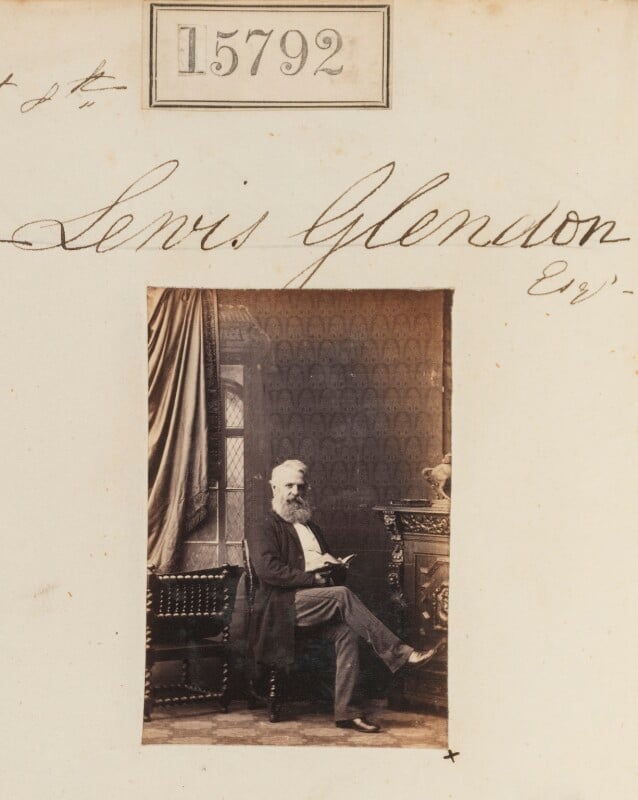 15792
8th
Lewis Glendon
Esqr